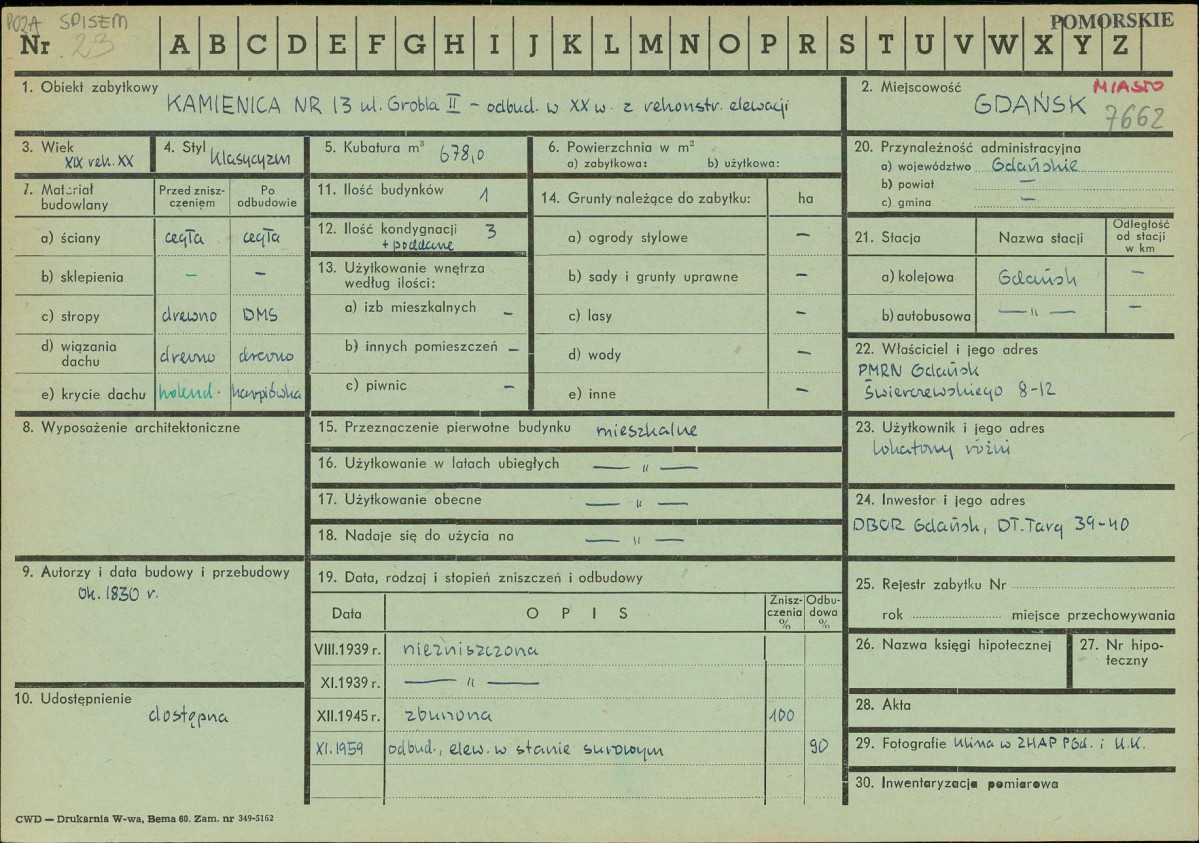 POZA SPISEM
POMORSKIE
Nr 23 A B C D E F G H I J K L M N O P R S T U V W X Y Z
1. Obiekt zabytkowy
KAMIENICA NR 13 ul. Grobla II – odbud. w XX w. z rekonstr. elewacji
2. Miejscowość MIASTO
GDAŃSK 7662
3. Wiek
XIX rek. XX
4. Styl
klasycyzm
5. Kubatura m³ 678,0
6. Powierzchnia w m²
a) zabytkowa: b) użytkowa:
20. Przynależność administracyjna
a) województwo Gdańskie
b) powiat —
c) gmina —
7. Materiał budowlany
Przed zniszczeniem
Po odbudowie
a) ściany cegła cegła
b) sklepienia – –
c) stropy drewno DMS
d) wiązania dachu drewno drewno
e) krycie dachu holend. karpiówka
11. Ilość budynków 1
12. Ilość kondygnacji 3
+ poddasze
13. Użytkowanie wnętrza
według ilości:
a) izb mieszkalnych –
b) innych pomieszczeń –
c) piwnic –
14. Grunty należące do zabytku: ha
a) ogrody stylowe –
b) sady i grunty uprawne –
c) lasy –
d) wody –
e) inne –
21. Stacja Nazwa stacji Odległość od stacji w km
a) kolejowa Gdańsk –
b) autobusowa — " — –
22. Właściciel i jego adres
PMRN Gdańsk
Świerczewskiego 8-12
8. Wyposażenie architektoniczne
15. Przeznaczenie pierwotne budynku mieszkalne
16. Użytkowanie w latach ubiegłych — " —
17. Użytkowanie obecne — " —
18. Nadaje się do użycia na — " —
23. Użytkownik i jego adres
lokatorzy różni
24. Inwestor i jego adres
DBOR Gdańsk, DT. Targ 39-40
9. Autorzy i data budowy i przebudowy
ok. 1830 r.
19. Data, rodzaj i stopień zniszczeń i odbudowy
Data OPIS Zniszczenia % Odbudowa %
VIII.1939 r. niezniszczona
XI.1939 r. — " —
XII.1945 r. zburzona 100
XI.1959 odbud., elew. w stanie surowym 90
25. Rejestr zabytku Nr
rok miejsce przechowywania
26. Nazwa księgi hipotecznej
27. Nr hipoteczny
10. Udostępnienie
dostępna
28. Akta
29. Fotografie klisza w ZHAP PGd. i U.K.
30. Inwentaryzacja pomiarowa
CWD — Drukarnia W-wa, Bema 60. Zam. nr 349-5162